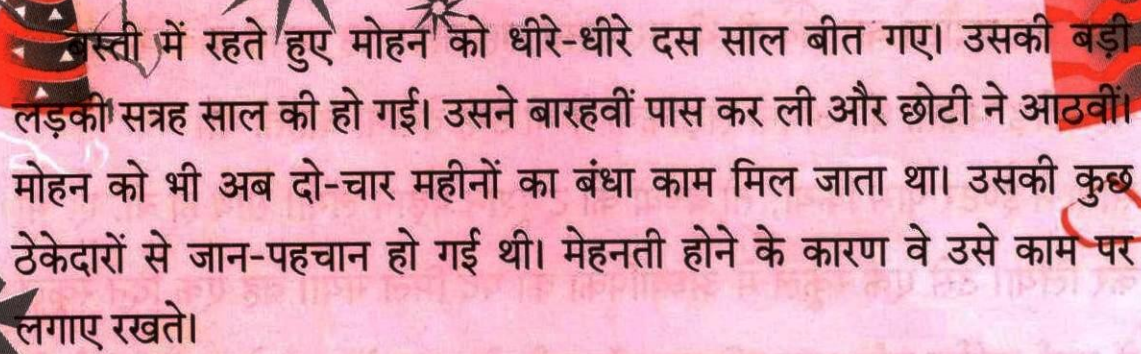 बस्ती में रहते हुए मोहन को धीरे-धीरे दस साल बीत गए। उसकी बड़ी
लड़की सत्रह साल की हो गई। उसने बारहवीं पास कर ली और छोटी ने आठवीं।
मोहन को भी अब दो-चार महीनों का बंधा काम मिल जाता था। उसकी कुछ
ठेकेदारों से जान-पहचान हो गई थी। मेहनती होने के कारण वे उसे काम पर
लगाए रखते।